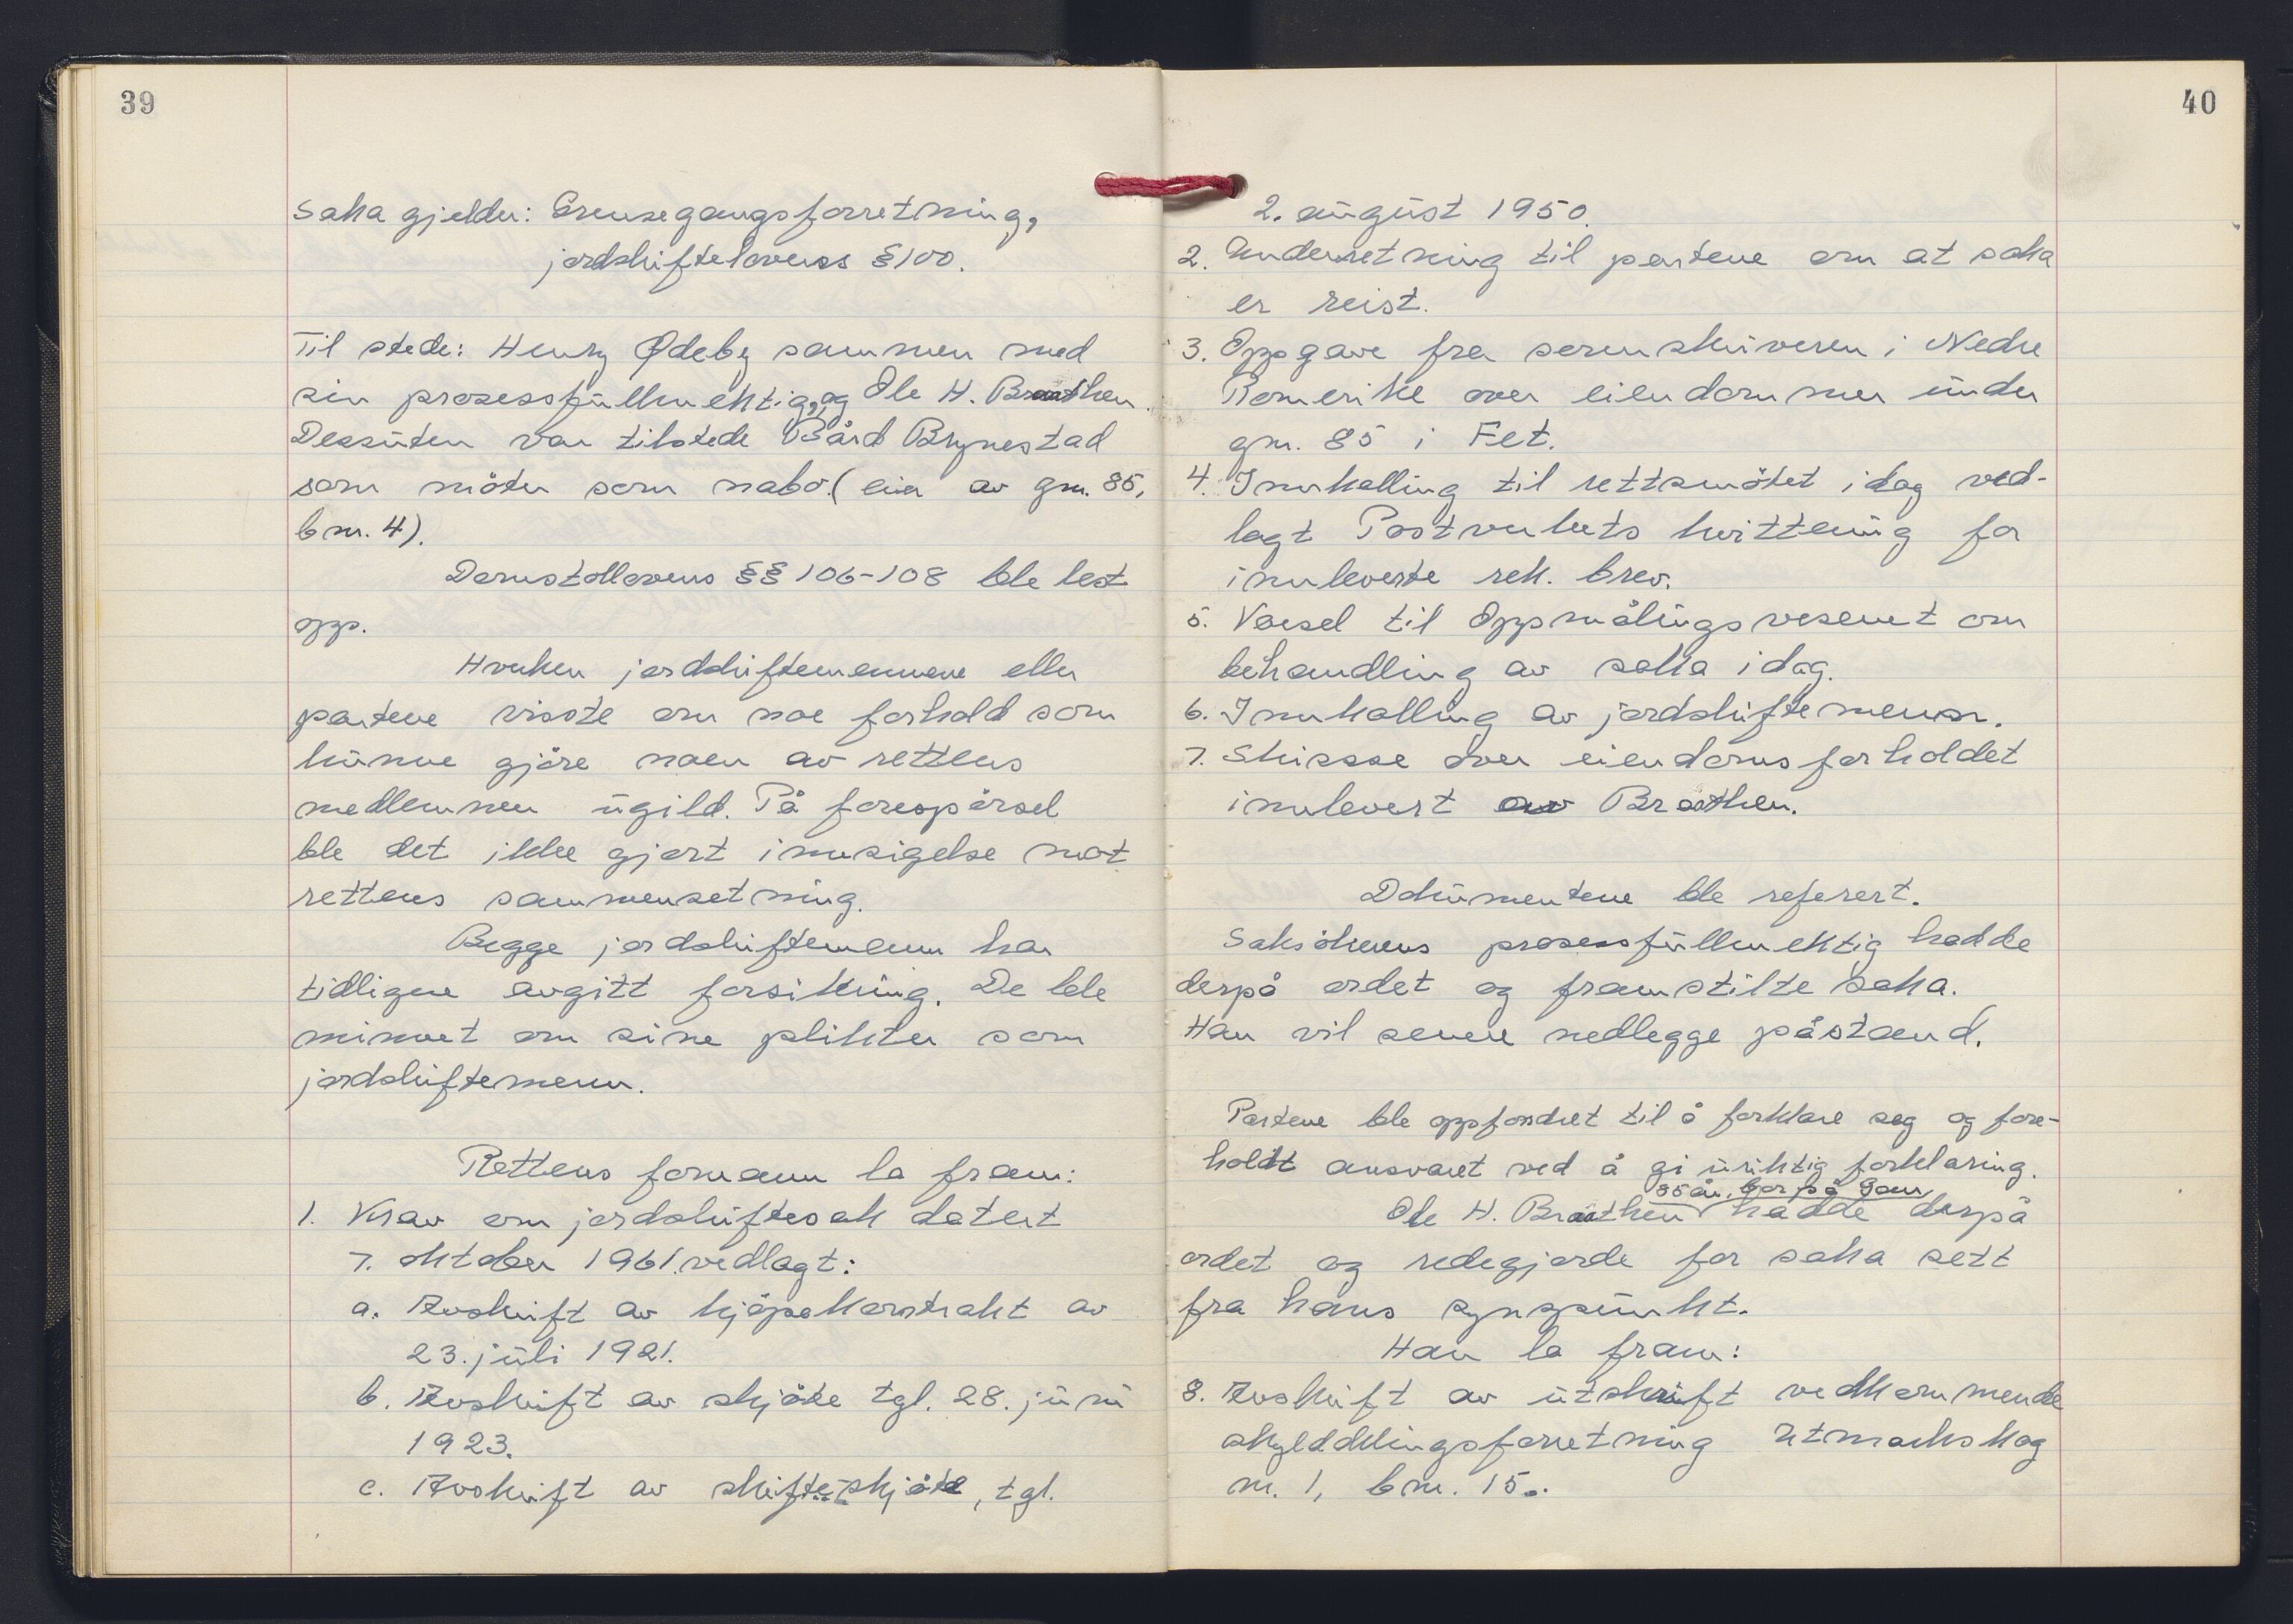 39
Saka gjelder: Grensegangsforretning,
jordskiftelovens § 100.
Til stede: Henry Ødeby sammen med
sin prosessfullmektig, og Ole H. Braathen.
Dessuten var tilstede Bård Brynestad
som møter som nabo. (eier av gnr. 85,
bnr. 4).
Domstollovens §§ 106-108 ble lest
opp.
Hverken jordskiftemennene eller
partene visste om noe forhold som
kunne gjøre noen av rettens
medlemmer ugild. På forespørsel
ble det ikke gjort innsigelse mot
rettens sammensetning.
Begge jordskiftemenn har
tidligere avgitt forsikring. De ble
minnet om sine plikter som
jordskiftemenn.
Rettens formann la fram:
1. Krav om jordskiftesak datert
7. oktober 1961. vedlagt:
a. Avskrift av kjøpekontrakt av
23. juli 1921.
b. Avskrift av skjøte tgl. 28. juni
1923.
c. Avskrift av skifteskjøte, tgl.
40
2. august 1950.
2. Underretning til partene om at saka
er reist.
3. Oppgave fra sorenskriveren i Nedre
Romerike over eiendommer under
gnr. 85 i Fet.
4. Innkalling til rettsmøtet idag ved-
lagt Postverkets kvittering for
innleverte rek. brev.
5. Varsel til Oppmålingsvesenet om
behandling av saka idag.
6. Innkalling av jordskiftemenn.
7. Skisse over eiendomsforholdet
innlevert av Braathen.
Dokumentene ble referert.
Saksøkerens prosessfullmektig hadde
derpå ordet og framstilte saka.
Han vil senere nedlegge påstand.
Partene ble oppfordret til å forklare seg og fore-
holdt ansvaret ved å gi uriktig forklaring.
55 år, bor på Gan,
Ole H. Braathen hadde derpå
ordet og redegjorde for saka sett
fra hans synspunkt.
Han la fram:
8. Avskrift av utskrift vedkommende
skylddelingsforretning Utmarkskog
nr. 1, bnr. 15.